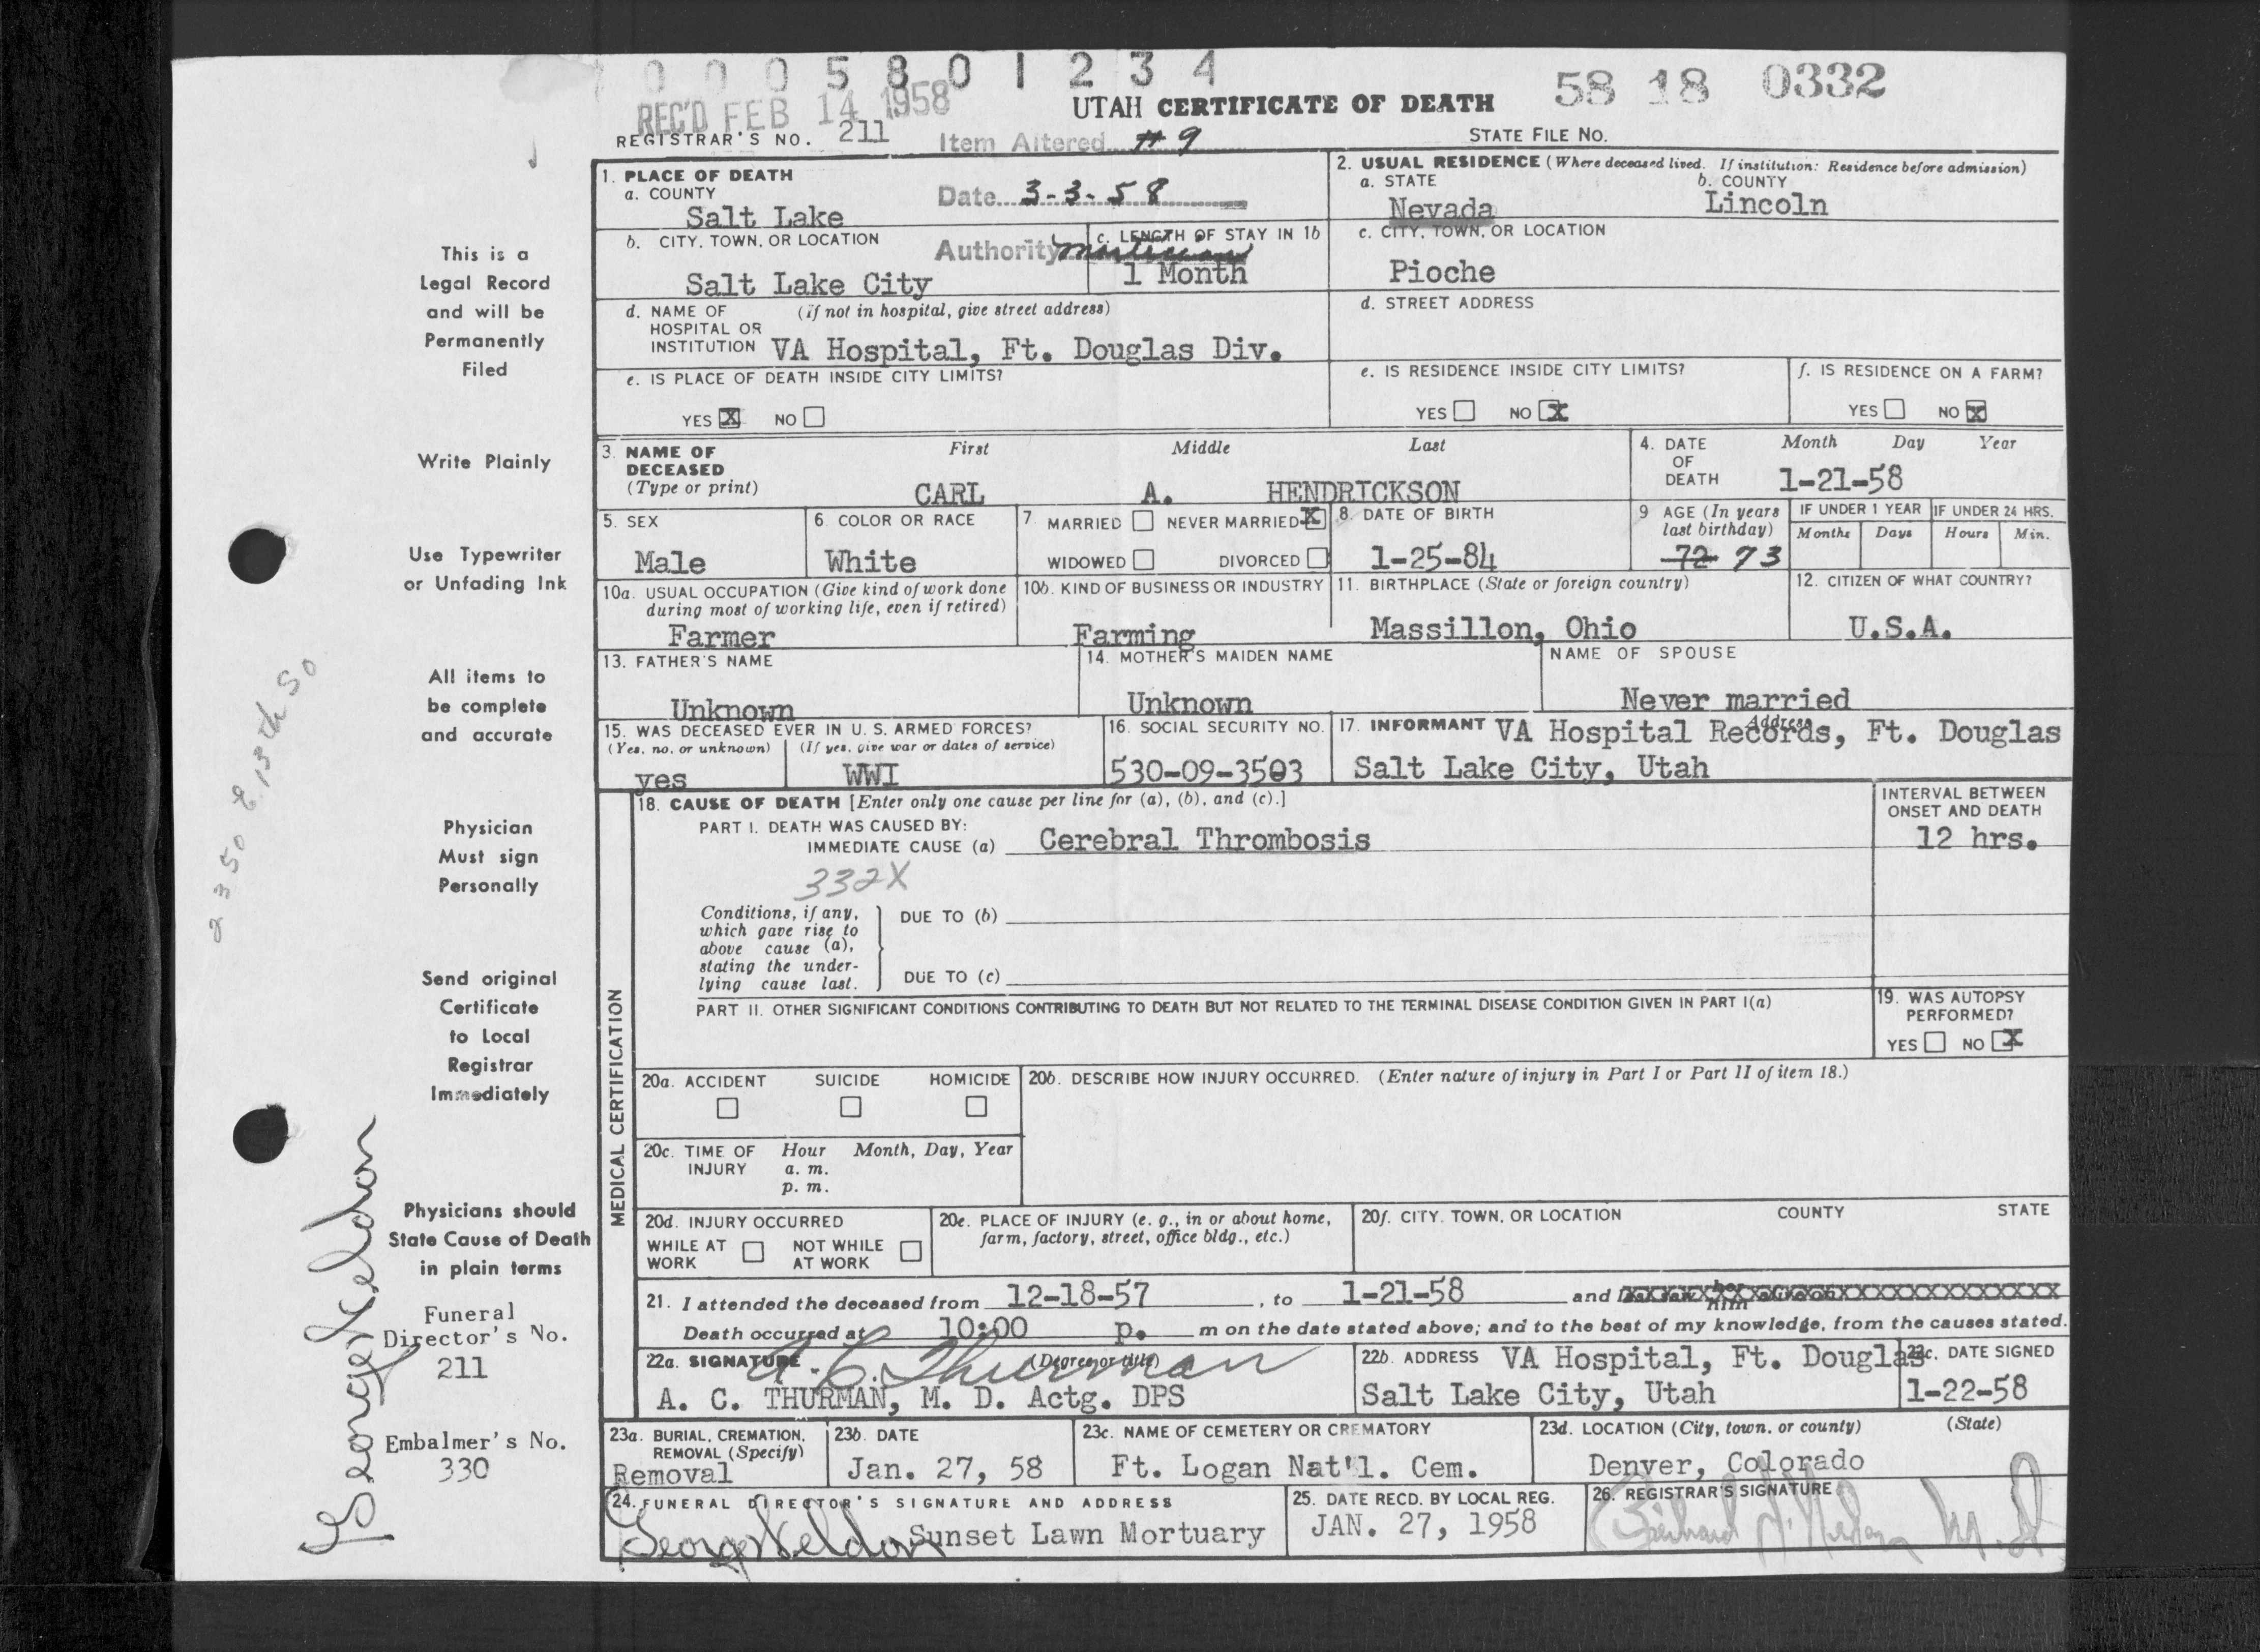 0 0 0 5 8 0 1 2 3 4
REC'D FEB 14 1958
UTAH CERTIFICATE OF DEATH
58 18 0332
REGISTRAR'S NO. 211
Item Altered #9
STATE FILE NO.
1. PLACE OF DEATH
a. COUNTY
Salt Lake
Date 3-3-58
2. USUAL RESIDENCE (Where deceased lived. If institution: Residence before admission)
a. STATE
Nevada
b. COUNTY
Lincoln
b. CITY, TOWN, OR LOCATION
Salt Lake City
Authority
c. LENGTH OF STAY IN 1b
1 Month
c. CITY, TOWN, OR LOCATION
Pioche
d. NAME OF HOSPITAL OR INSTITUTION (if not in hospital, give street address)
VA Hospital, Ft. Douglas Div.
d. STREET ADDRESS
e. IS PLACE OF DEATH INSIDE CITY LIMITS?
YES X NO
e. IS RESIDENCE INSIDE CITY LIMITS?
YES NO X
f. IS RESIDENCE ON A FARM?
YES NO X
3. NAME OF DECEASED (Type or print)
First Middle Last
CARL A. HENDRICKSON
4. DATE OF DEATH
Month Day Year
1-21-58
5. SEX
Male
6. COLOR OR RACE
White
7. MARRIED NEVER MARRIED X
WIDOWED DIVORCED
8. DATE OF BIRTH
1-25-84
9 AGE (In years last birthday)
72 73
IF UNDER 1 YEAR
Months Days
IF UNDER 24 HRS.
Hours Min.
10a. USUAL OCCUPATION (Give kind of work done during most of working life, even if retired)
Farmer
10b. KIND OF BUSINESS OR INDUSTRY
Farming
11. BIRTHPLACE (State or foreign country)
Massillon, Ohio
12. CITIZEN OF WHAT COUNTRY?
U.S.A.
13. FATHER'S NAME
Unknown
14. MOTHER'S MAIDEN NAME
Unknown
NAME OF SPOUSE
Never married
15. WAS DECEASED EVER IN U. S. ARMED FORCES?
(Yes, no, or unknown) (If yes, give war or dates of service)
yes WWI
16. SOCIAL SECURITY NO.
530-09-3503
17. INFORMANT Address
VA Hospital Records, Ft. Douglas
Salt Lake City, Utah
MEDICAL CERTIFICATION
18. CAUSE OF DEATH [Enter only one cause per line for (a), (b), and (c).]
PART I. DEATH WAS CAUSED BY:
IMMEDIATE CAUSE (a) Cerebral Thrombosis
INTERVAL BETWEEN ONSET AND DEATH
12 hrs.
332X
Conditions, if any, which gave rise to above cause (a), stating the underlying cause last.
DUE TO (b)
DUE TO (c)
PART II. OTHER SIGNIFICANT CONDITIONS CONTRIBUTING TO DEATH BUT NOT RELATED TO THE TERMINAL DISEASE CONDITION GIVEN IN PART I(a)
19. WAS AUTOPSY PERFORMED?
YES NO X
20a. ACCIDENT SUICIDE HOMICIDE
20b. DESCRIBE HOW INJURY OCCURRED. (Enter nature of injury in Part I or Part II of item 18.)
20c. TIME OF INJURY
Hour Month, Day, Year
a. m.
p. m.
20d. INJURY OCCURRED
WHILE AT WORK NOT WHILE AT WORK
20e. PLACE OF INJURY (e. g., in or about home, farm, factory, street, office bldg., etc.)
20f. CITY, TOWN, OR LOCATION COUNTY STATE
21. I attended the deceased from 12-18-57, to 1-21-58 and
Death occurred at 10:00 p. m on the date stated above; and to the best of my knowledge, from the causes stated.
22a. SIGNATURE (Degree or title)
A. C. Thurman
A. C. THURMAN, M. D. Actg. DPS
22b. ADDRESS VA Hospital, Ft. Douglas
Salt Lake City, Utah
22c. DATE SIGNED
1-22-58
23a. BURIAL, CREMATION, REMOVAL (Specify)
Removal
23b. DATE
Jan. 27, 58
23c. NAME OF CEMETERY OR CREMATORY
Ft. Logan Nat'l. Cem.
23d. LOCATION (City, town, or county) (State)
Denver, Colorado
24. FUNERAL DIRECTOR'S SIGNATURE AND ADDRESS
George Neldon Sunset Lawn Mortuary
25. DATE RECD. BY LOCAL REG.
JAN. 27, 1958
26. REGISTRAR'S SIGNATURE
This is a
Legal Record
and will be
Permanently
Filed
Write Plainly
Use Typewriter
or Unfading Ink
All items to
be complete
and accurate
Physician
Must sign
Personally
Send original
Certificate
to Local
Registrar
Immediately
Physicians should
State Cause of Death
in plain terms
Funeral
Director's No.
211
Embalmer's No.
330
George Neldon
2350 E 13th So